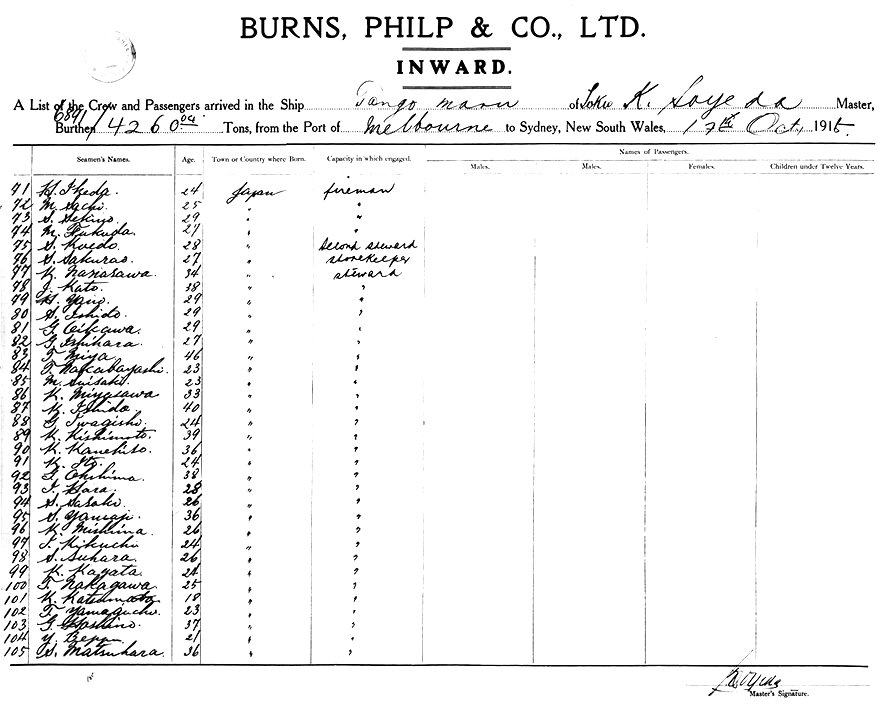 BURNS, PHILP & CO., LTD.
INWARD.
A List of the Crew and Passengers arrived in the Ship Tango Maru of Tokio K. Soyeda Master,
Burthen 6891/4260 00 Tons, from the Port of Melbourne to Sydney, New South Wales, 17th Oct, 1915.
Names of Passengers.
Seamen's Names. Age. Town or Country where Born. Capacity in which engaged. Males. Males. Females. Children under Twelve Years.
71 H. Ikeda. 24 Japan fireman
72 M. Sachi. 25 " "
73 S. Sekino 29 " "
74 M. Fukuda. 27 " "
75 S. Kuedo. 28 " Second steward
76 S. Sakurao. 27 " storekeeper
77 K. Narasawa. 34 " steward
78 J. Kato. 38 " "
79 H. Yano. 29 " "
80 S. Ishido. 29 " "
81 G. Oikawa. 29 " "
82 G. Ishihara. 27 " "
83 T. Miya. 46 " "
84 T. Nakabayashi. 23 " "
85 M. Suisaki. 23 " "
86 K. Miyasawa 33 " "
87 K. Ishida. 40 " "
88 G. Iwagishi. 24 " "
89 K. Kishimoto. 39 " "
90 K. Kanehiso. 36 " "
91 K. Ito. 24 " "
92 T. Ohshima. 38 " "
93 I. Hara. 28 " "
94 S. Sasaki. 26 " "
95 S. Yamaji. 36 " "
96 K. Mishina. 26 " "
97 I. Kikuchi 24 " "
98 S. Suhara. 26 " "
99 K. Kagata. 21 " "
100 T. Nakagawa. 25 " "
101 K. Katsumata 18 " "
102 T. Yamaguchi. 23 " "
103 G. Hoshino. 37 " "
104 Y. Beppu. 21 " "
105 S. Matsuhara. 36 " "
K. Soyeda
Master's Signature.